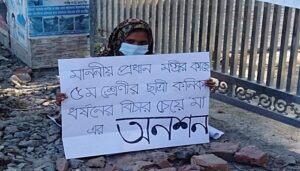 মাননীয় প্রধান মন্ত্রীর কাছে
৫ম শ্রেণীর ছাত্রী কনিকা
ধর্ষনের বিচার চেয়ে মা
এর অনশন